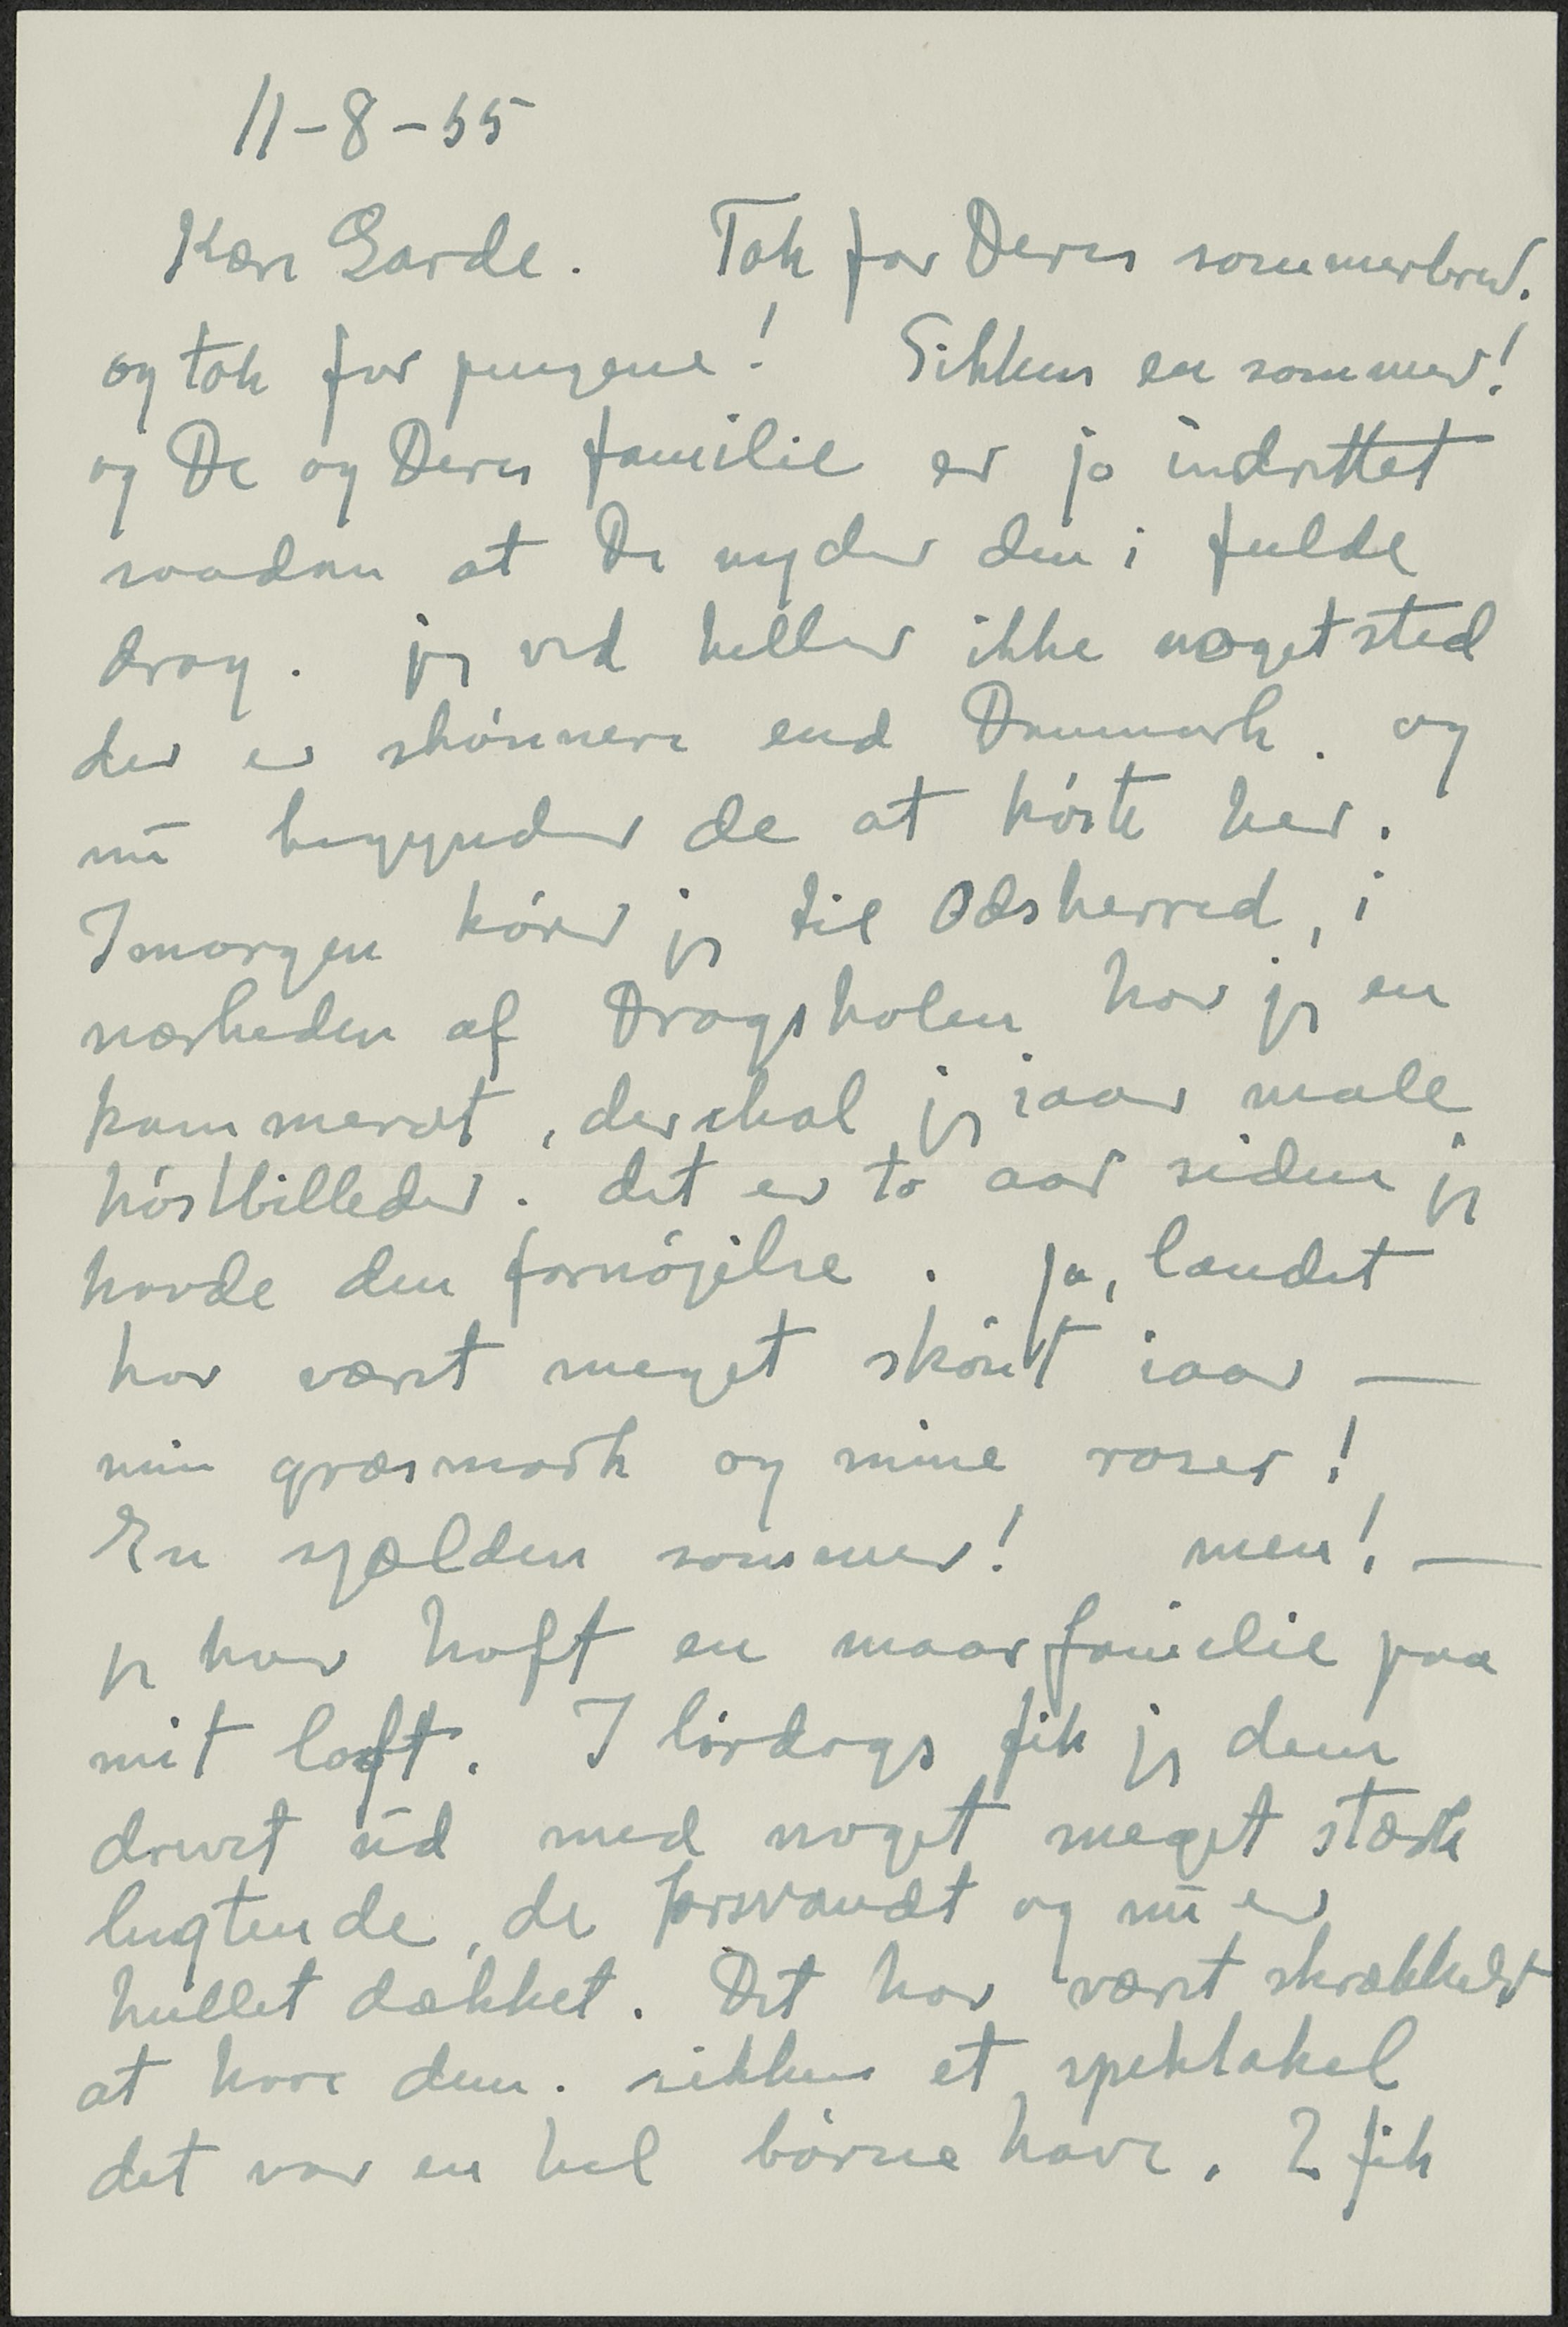 11-8-55
Kære Garde. Tak for Deres sommerbrev.
og tak for pengene! Sikken en sommer!
og De og Deres familie er jo indrettet
saadan at De nyder den i fulde
drag. jeg ved heller ikke noget sted
der er skönnere end Danmark. og
nu begynder de at höste her.
Imorgen körer jeg til Odsherred, i
nærheden af Dragsholm har jeg en
kammerat, der skal jeg iaar male
höstbilleder. det er to aar siden jeg
havde den fornöjelse. Ja, landet
har været meget skönt iaar —
min græsmark og mine roser!
En sjælden sommer! men! —
jeg har haft en maarfamilie paa
mit loft. I lördags fik jeg dem
drevet ud med noget meget stærk
lugtende, de forsvandt og nu er
hullet dækket. Det har været skrækkeligt
at have dem. sikken et spektakel
det var en hel börnehave. 2 fik